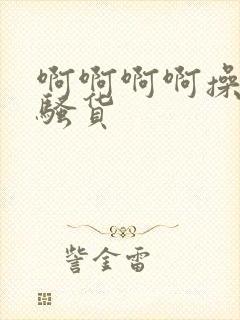 啊啊啊啊操
骚货
訾金雷